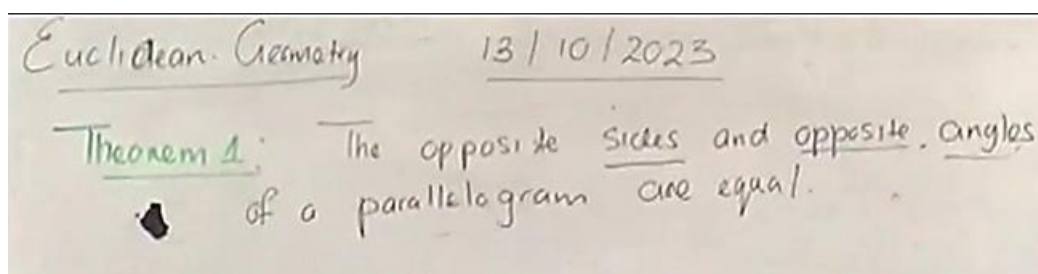 Euclidean. Geometry 13/10/2023
Theorem 1: The opposite sides and opposite. angles
of a parallelogram are equal.